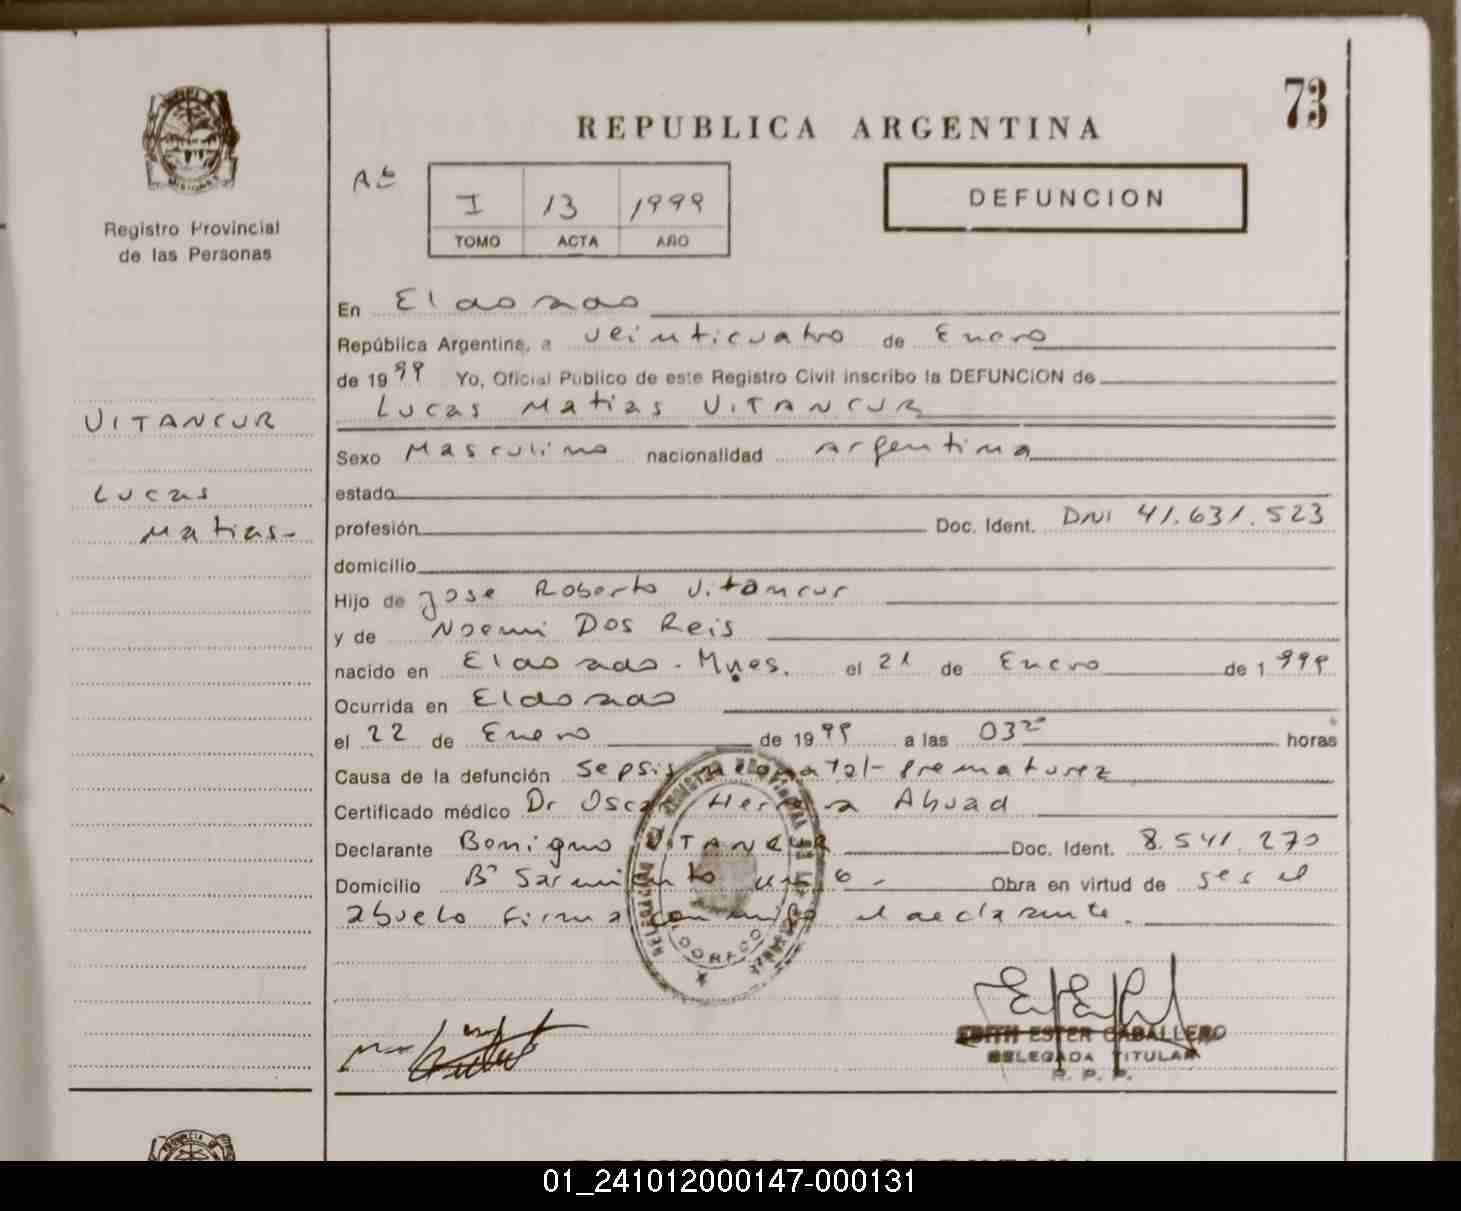 73
REPUBLICA ARGENTINA
Registro Provincial
de las Personas
I 13 1999
TOMO ACTA AÑO
DEFUNCION
VITANCUR
Lucas
Matias-
En Eldorado
República Argentina, a veinticuatro de Enero
de 1999 Yo, Oficial Publico de este Registro Civil inscribo la DEFUNCION de
Lucas Matias VITANCUR
Sexo Masculino nacionalidad Argentina
estado
profesión Doc. Ident. DNI 41.631.523
domicilio
Hijo de Jose Roberto Vitancur
y de Noemi Dos Reis
nacido en Eldorado - Mnes. el 21 de Enero de 1999
Ocurrida en Eldorado
el 22 de Enero de 1999 a las 03 horas
Causa de la defunción Sepsis neonatal - Prematurez
Certificado médico Dr Oscar Herrera Abuad
Declarante Benigno VITANCUR Doc. Ident. 8.541.270
Domicilio Bº Sarmiento Obra en virtud de ser el
abuelo firma conmigo el declarante.
EDITH ESTER CABALLERO
DELEGADA TITULAR
R. P. P.
01_241012000147-000131